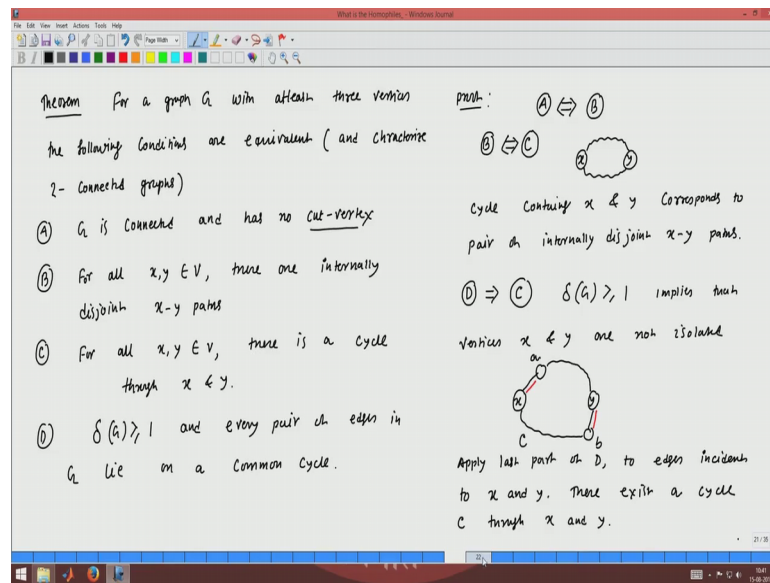 What is the Homophiles_ - Windows Journal
File Edit View Insert Actions Tools Help
Page Width
B I
Theorem For a graph G with atleast three vertices
the following Conditions are equivalent ( and Chractorize
2- Connected graphs)
A G is Connected and has no Cut-vertex
B For all x,y ∈ V, there are internally
disjoint x-y paths
C For all x,y ∈ V, there is a cycle
through x & y.
D δ(G) ≥, 1 and every pair of edges in
G lie on a Common Cycle.
proof: A ⇔ B
B ⇔ C x y
Cycle Containing x & y Corresponds to
pair of internally disjoint x-y paths.
D ⇒ C δ(G) ≥, 1 implies that
vertices x & y are not isolated
a
x y
C b
Apply last part of D, to edges incident
to x and y. There exist a cycle
C through x and y.
21/35
22
10:41